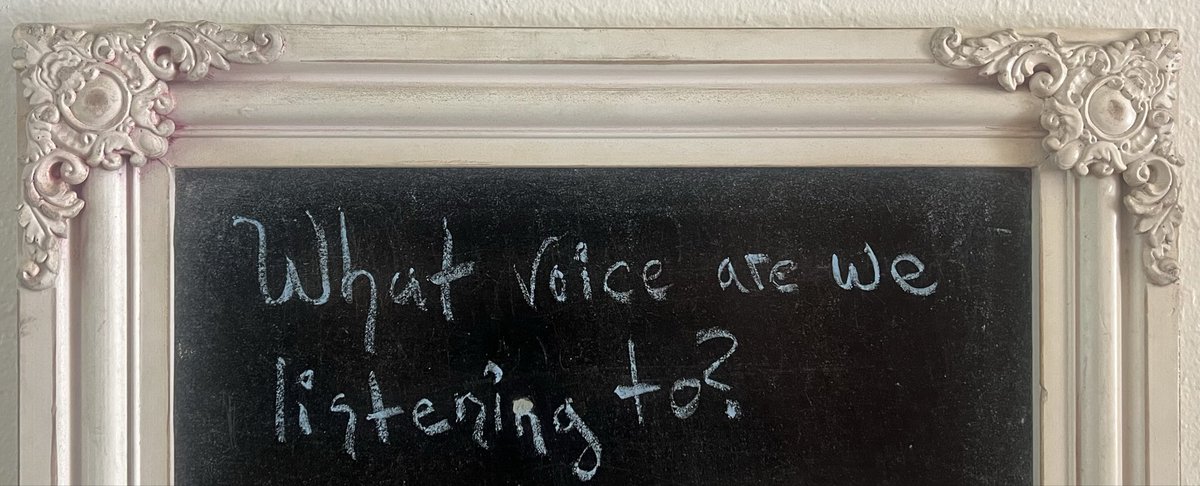 What voice are we
listening to?